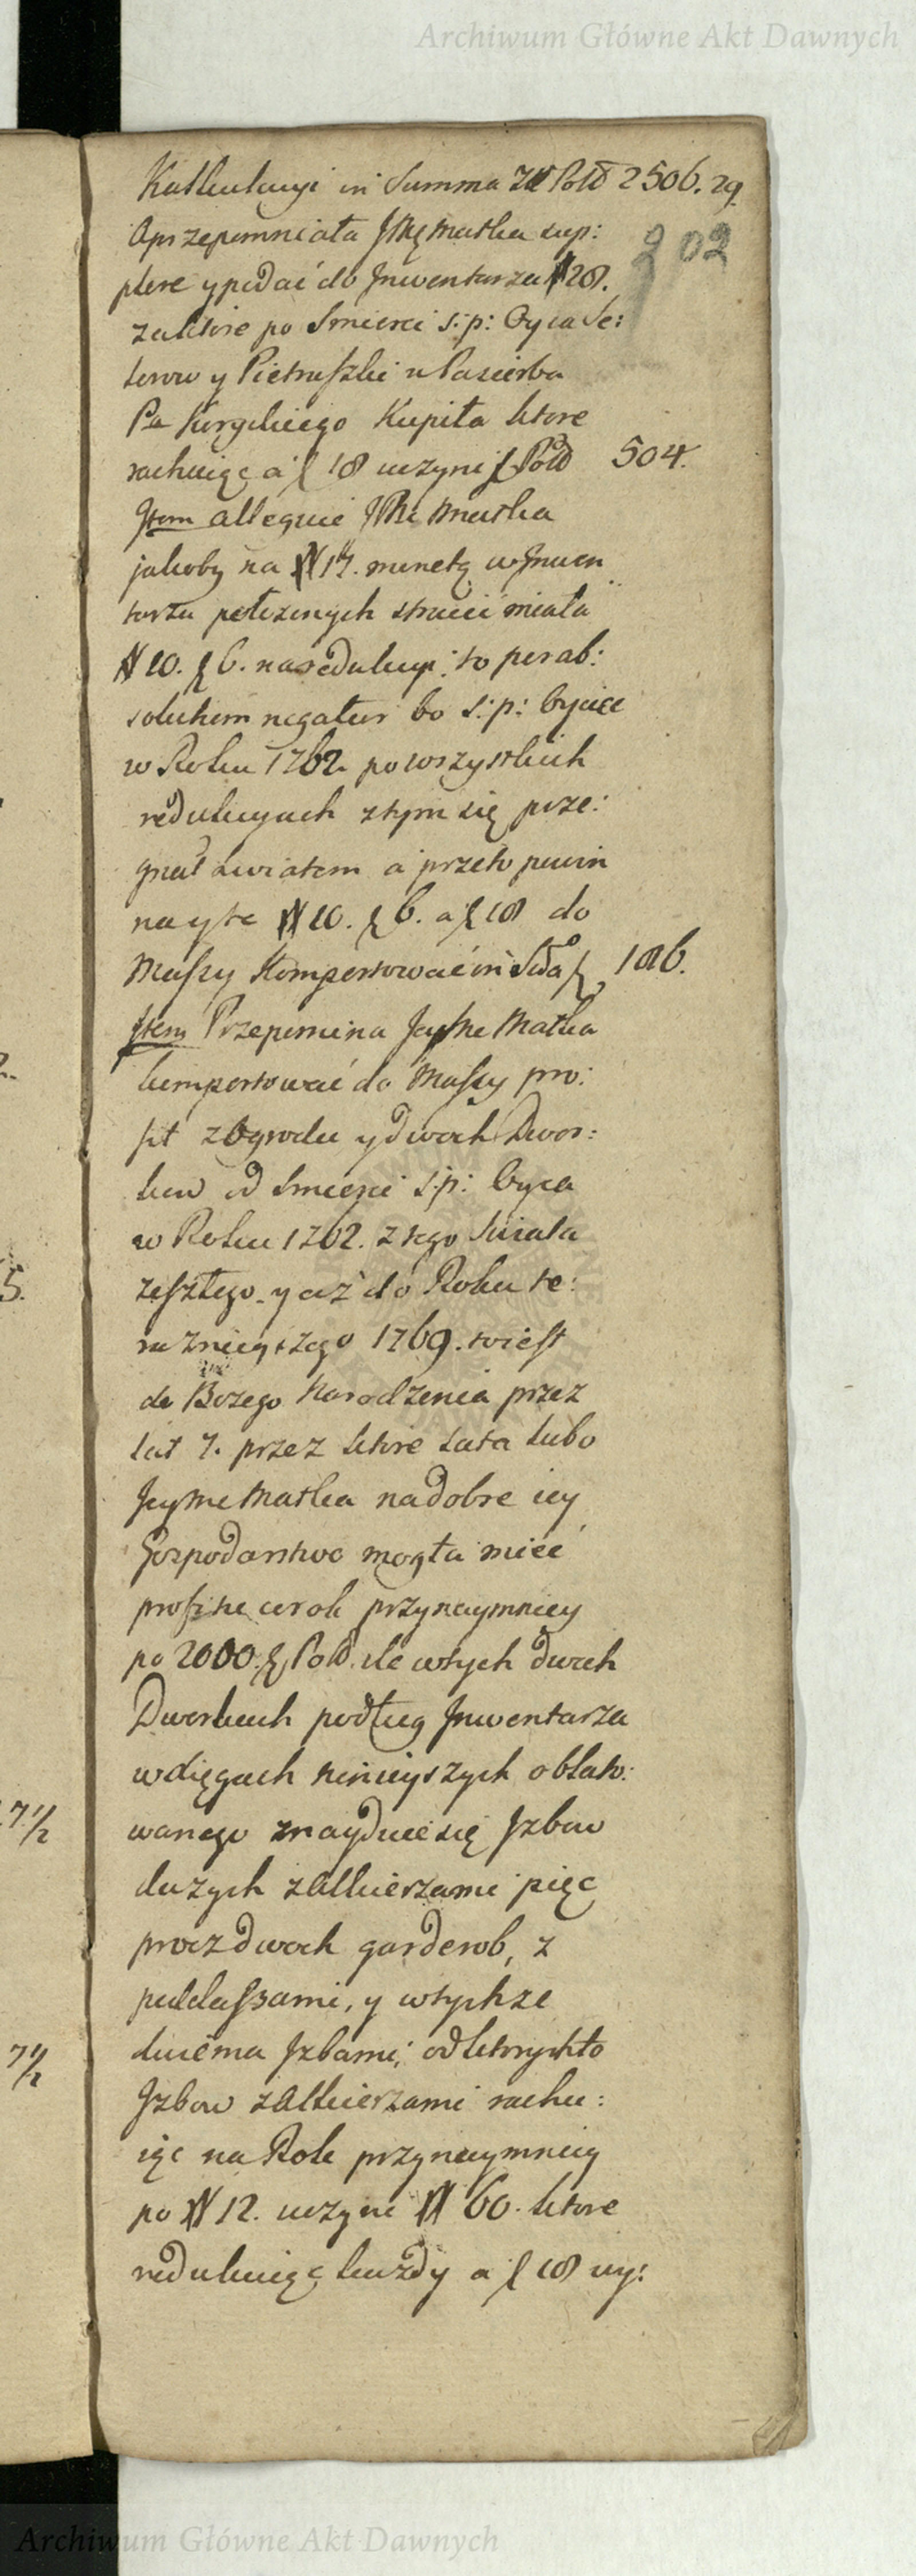 Archiwum Główne Akt Dawnych
Kalkulacyi in Summa Zł Polð 2506. 29.
202
Aprzepomniała JMę Matka sup:
plere y podać do Inwentarza # 28.
zaktore po Smierci ś: p: Oyca Se:
terow y Pietruszki u Pasierba
Pa Kupiła ktore
rachuiąc a ƶ 18 uczyni ƶ Polð 504.
Item alleguie JMć Matka
jakoby na # 17. monetą w Inwen
tarzu położonych stracić miała
# 10. ƶ 6. na redukcyi: to per ab:
solutum negatur bo ś: p: Oyciec
w Roku 1762 po wszystkich
redukcyach ztym się poże:
gnał Swiatem a przeto powin
na y te # 10. ƶ 6. a ƶ 18 do
Massy Komportować in Sũa ƶ 186.
Item Przepomina JeyMć Matka
komportować do Massy pro:
fit z Ogrodu y dwoch Dwor:
kow od Smierci ś: p: Oyca
w Roku 1762. z tego Swiata
zeszłego y aż do Roku te:
raznieyszego 1769. toiest
do Bożego Narodzenia przez
lat 7. przez ktore Lata lubo
JeyMć Matka na dobre iey
Gospodarstwo mogła mieć
profitu co rok przynaymniey
po 2000 ƶ Polð. ile wtych dwoch
Dworkach podług Inwentarza
wxięgach ninieyszych oblato:
wanego znayduie się Izbow
dużych zAlkierzami pięć
procz dwoch garderob, z
y wtychże
dwiema Izbami; od ktorychto
Izbow zAlkierzami rachu:
iąc na Rok przynaymniey
po # 12. uczyni # 60. ktore
redukuiąc każdy a ƶ 18 uy:
5.
7 1/2
7 1/2
Archiwum Główne Akt Dawnych